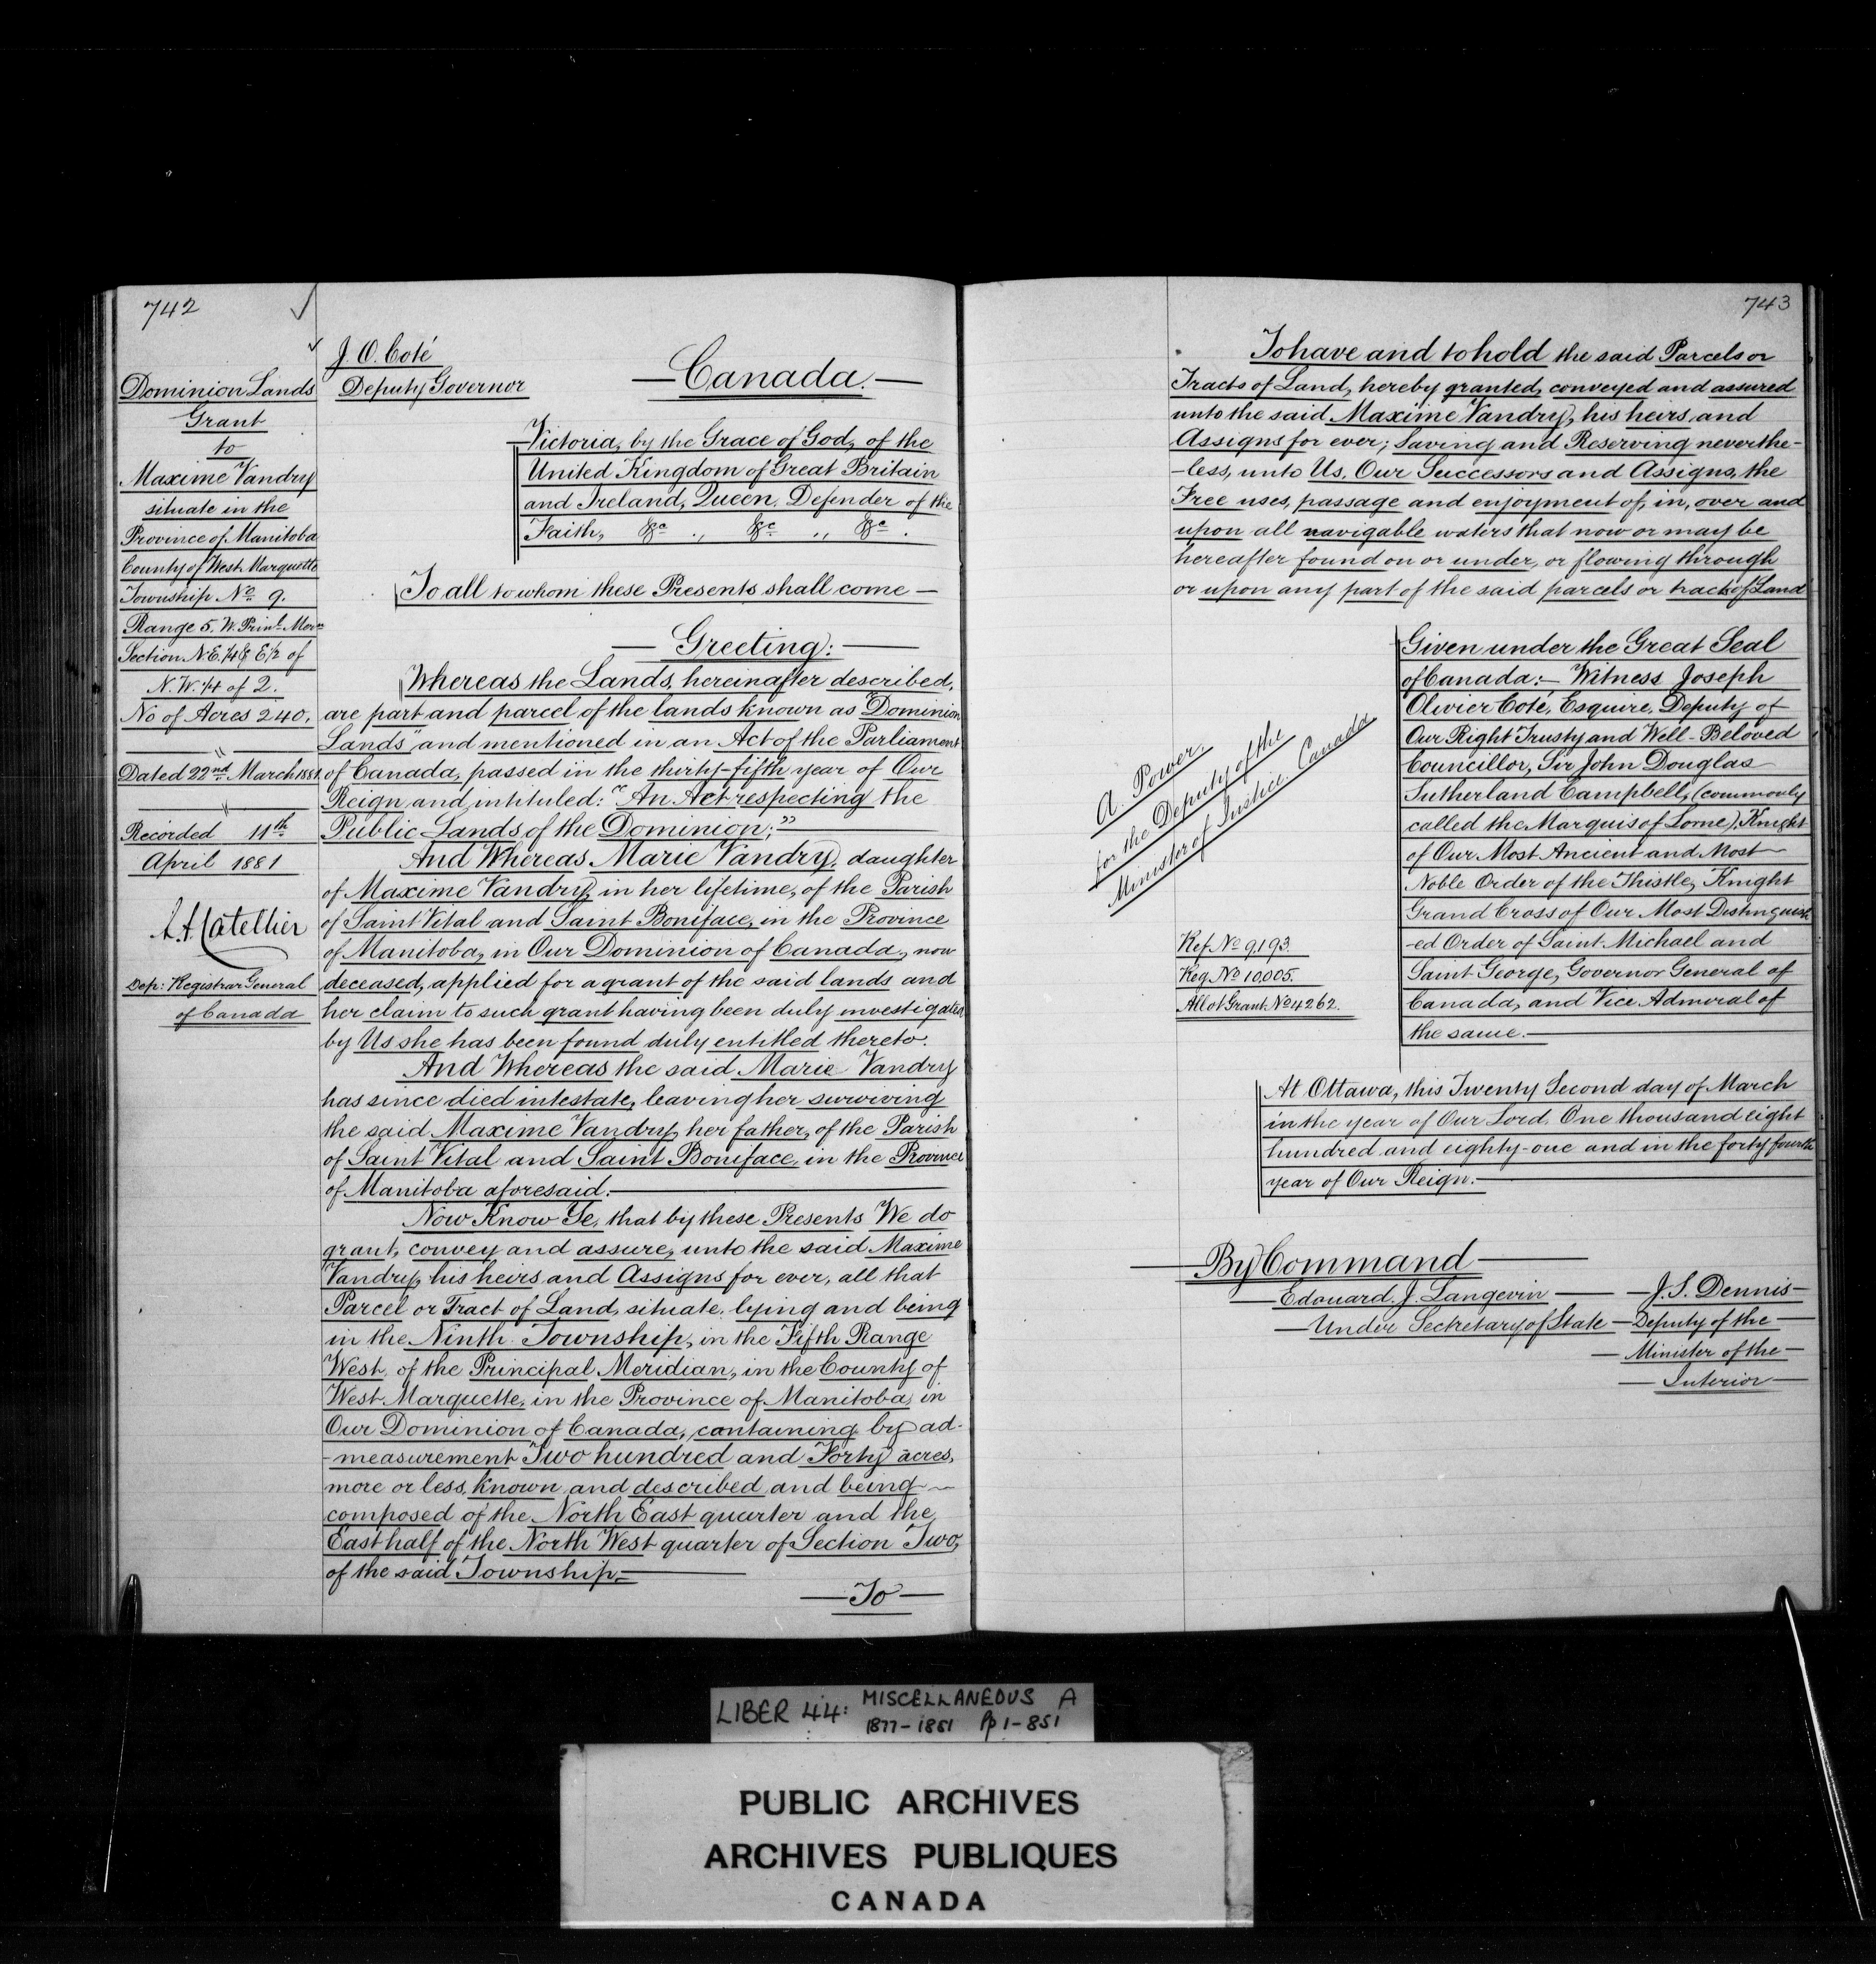 742
Dominion Lands
Grant
to
Maxime Vandry
situate in the
Province of Manitoba
County of West Marquette
Township No 9.
Range 5. W. Prinl. Mern
Section N.E. 1/4 & E 1/2 of
N.W. 1/4 of 2.
No of Acres 240.
"
Dated 22nd March 1881.
"
Recorded 11th
April 1881
L. A. Catellier
Dep: Registrar General
of Canada
J. O. Coté
Deputy Governor
— Canada. —
Victoria, by the Grace of God, of the
United Kingdom of Great Britain
and Ireland, Queen. Defender of the
Faith, &c ., &c ., &c .
To all to whom these Presents shall come —
— Greeting: —
Whereas the Lands, hereinafter described,
are part and parcel of the lands known as "Dominion
Lands" and mentioned in an Act of the Parliament
of Canada, passed in the thirty-fifth year of Our
Reign and intituled: "An Act respecting the
Public Lands of the Dominion;" —
And Whereas Marie Vandry, daughter
of Maxime Vandry, in her lifetime, of the Parish
of Saint Vital and Saint Boniface, in the Province
of Manitoba, in Our Dominion of Canada, now
deceased, applied for a grant of the said lands and
her claim to such grant having been duly investigated
by Us she has been found duly entitled thereto.
And Whereas the said Marie Vandry
has since died intestate, leaving her surviving
the said Maxime Vandry, her father, of the Parish
of Saint Vital and Saint Boniface, in the Province
of Manitoba aforesaid. —
Now Know Ye, that by these Presents We do
grant, convey and assure, unto the said Maxime
Vandry, his heirs and Assigns for ever, all that
Parcel or Tract of Land, situate, lying and being
in the Ninth Township, in the Fifth Range
West, of the Principal Meridian, in the County of
West Marquette, in the Province of Manitoba, in
Our Dominion of Canada, containing by ad-
-measurement Two hundred and Forty acres,
more or less, known and described and being —
composed of the North East quarter and the
East half of the North West quarter of Section Two,
of the said Township. —
— To —
743
To have and to hold the said Parcels or
Tracts of Land, hereby granted, conveyed and assured
unto the said Maxime Vandry, his heirs, and
Assigns for ever; Saving and Reserving neverthe-
-less, unto Us, Our Successors and Assigns, the
Free uses, passage and enjoyment of, in, over and
upon all navigable waters that now or may be
hereafter found on or under, or flowing through
or upon any part of the said parcels or tracts of Land
A. Power,
for the Deputy of the
Minister of Justice. Canada
Ref No 9193.
Reg No 10,005.
Allot Grant. No 4262.
Given under the Great Seal
of Canada: — Witness Joseph
Olivier Coté, Esquire, Deputy of
Our Right Trusty and Well-Beloved
Councillor, Sir John Douglas —
Sutherland Campbell, (commonly
called the Marquis of Lorne), Knight
of Our Most Ancient and Most —
Noble Order of the Thistle, Knight
Grand Cross of Our Most Distinguish
-ed Order of Saint Michael and
Saint George, Governor General of
Canada, and Vice Admiral of
the same. —
At Ottawa, this Twenty Second day of March
in the year of Our Lord, One thousand eight
hundred and eighty-one and in the forty fourth
year of Our Reign. —
— By Command —
— Edouard. J. Langevin — — J. S. Dennis —
— Under Secretary of State — Deputy of the —
— Minister of the —
— Interior —
LIBER 44: MISCELLANEOUS A
1877-1881 Pp 1-851
PUBLIC ARCHIVES
ARCHIVES PUBLIQUES
CANADA